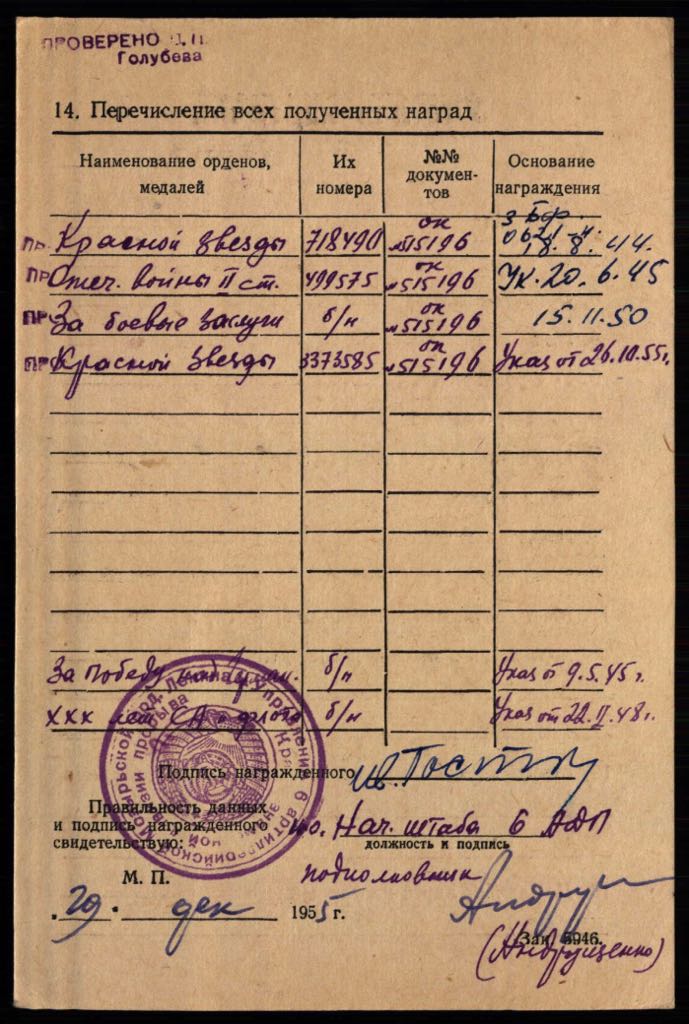 ПРОВЕРЕНО
Голубева
14. Перечисление всех полученных наград
Наименование орденов, медалей Их номера №№ документов Основание награждения
ПР. Красной Звезды 718490 ок №515196 3 Бф. 18.8.44.
ПР Отеч. войны II ст. 499575 ок №515196 Ук. 20.6.45
ПР За боевые заслуги б/н ок №515196 15.11.50
ПР Красной Звезды 3373585 ок №515196 Указ от 26.10.55г.
За Победу над Герман. б/н Указ от 9.5.45г.
XXX лет СА и флота б/н Указ от 22.II.48г.
Подпись награжденного
Правильность данных
и подпись награжденного
свидетельствую:
Нач. штаба 6 АДП
должность и подпись
М. П.
подполковник
29. дек 1955 г.
Зак
(Андрущенко)